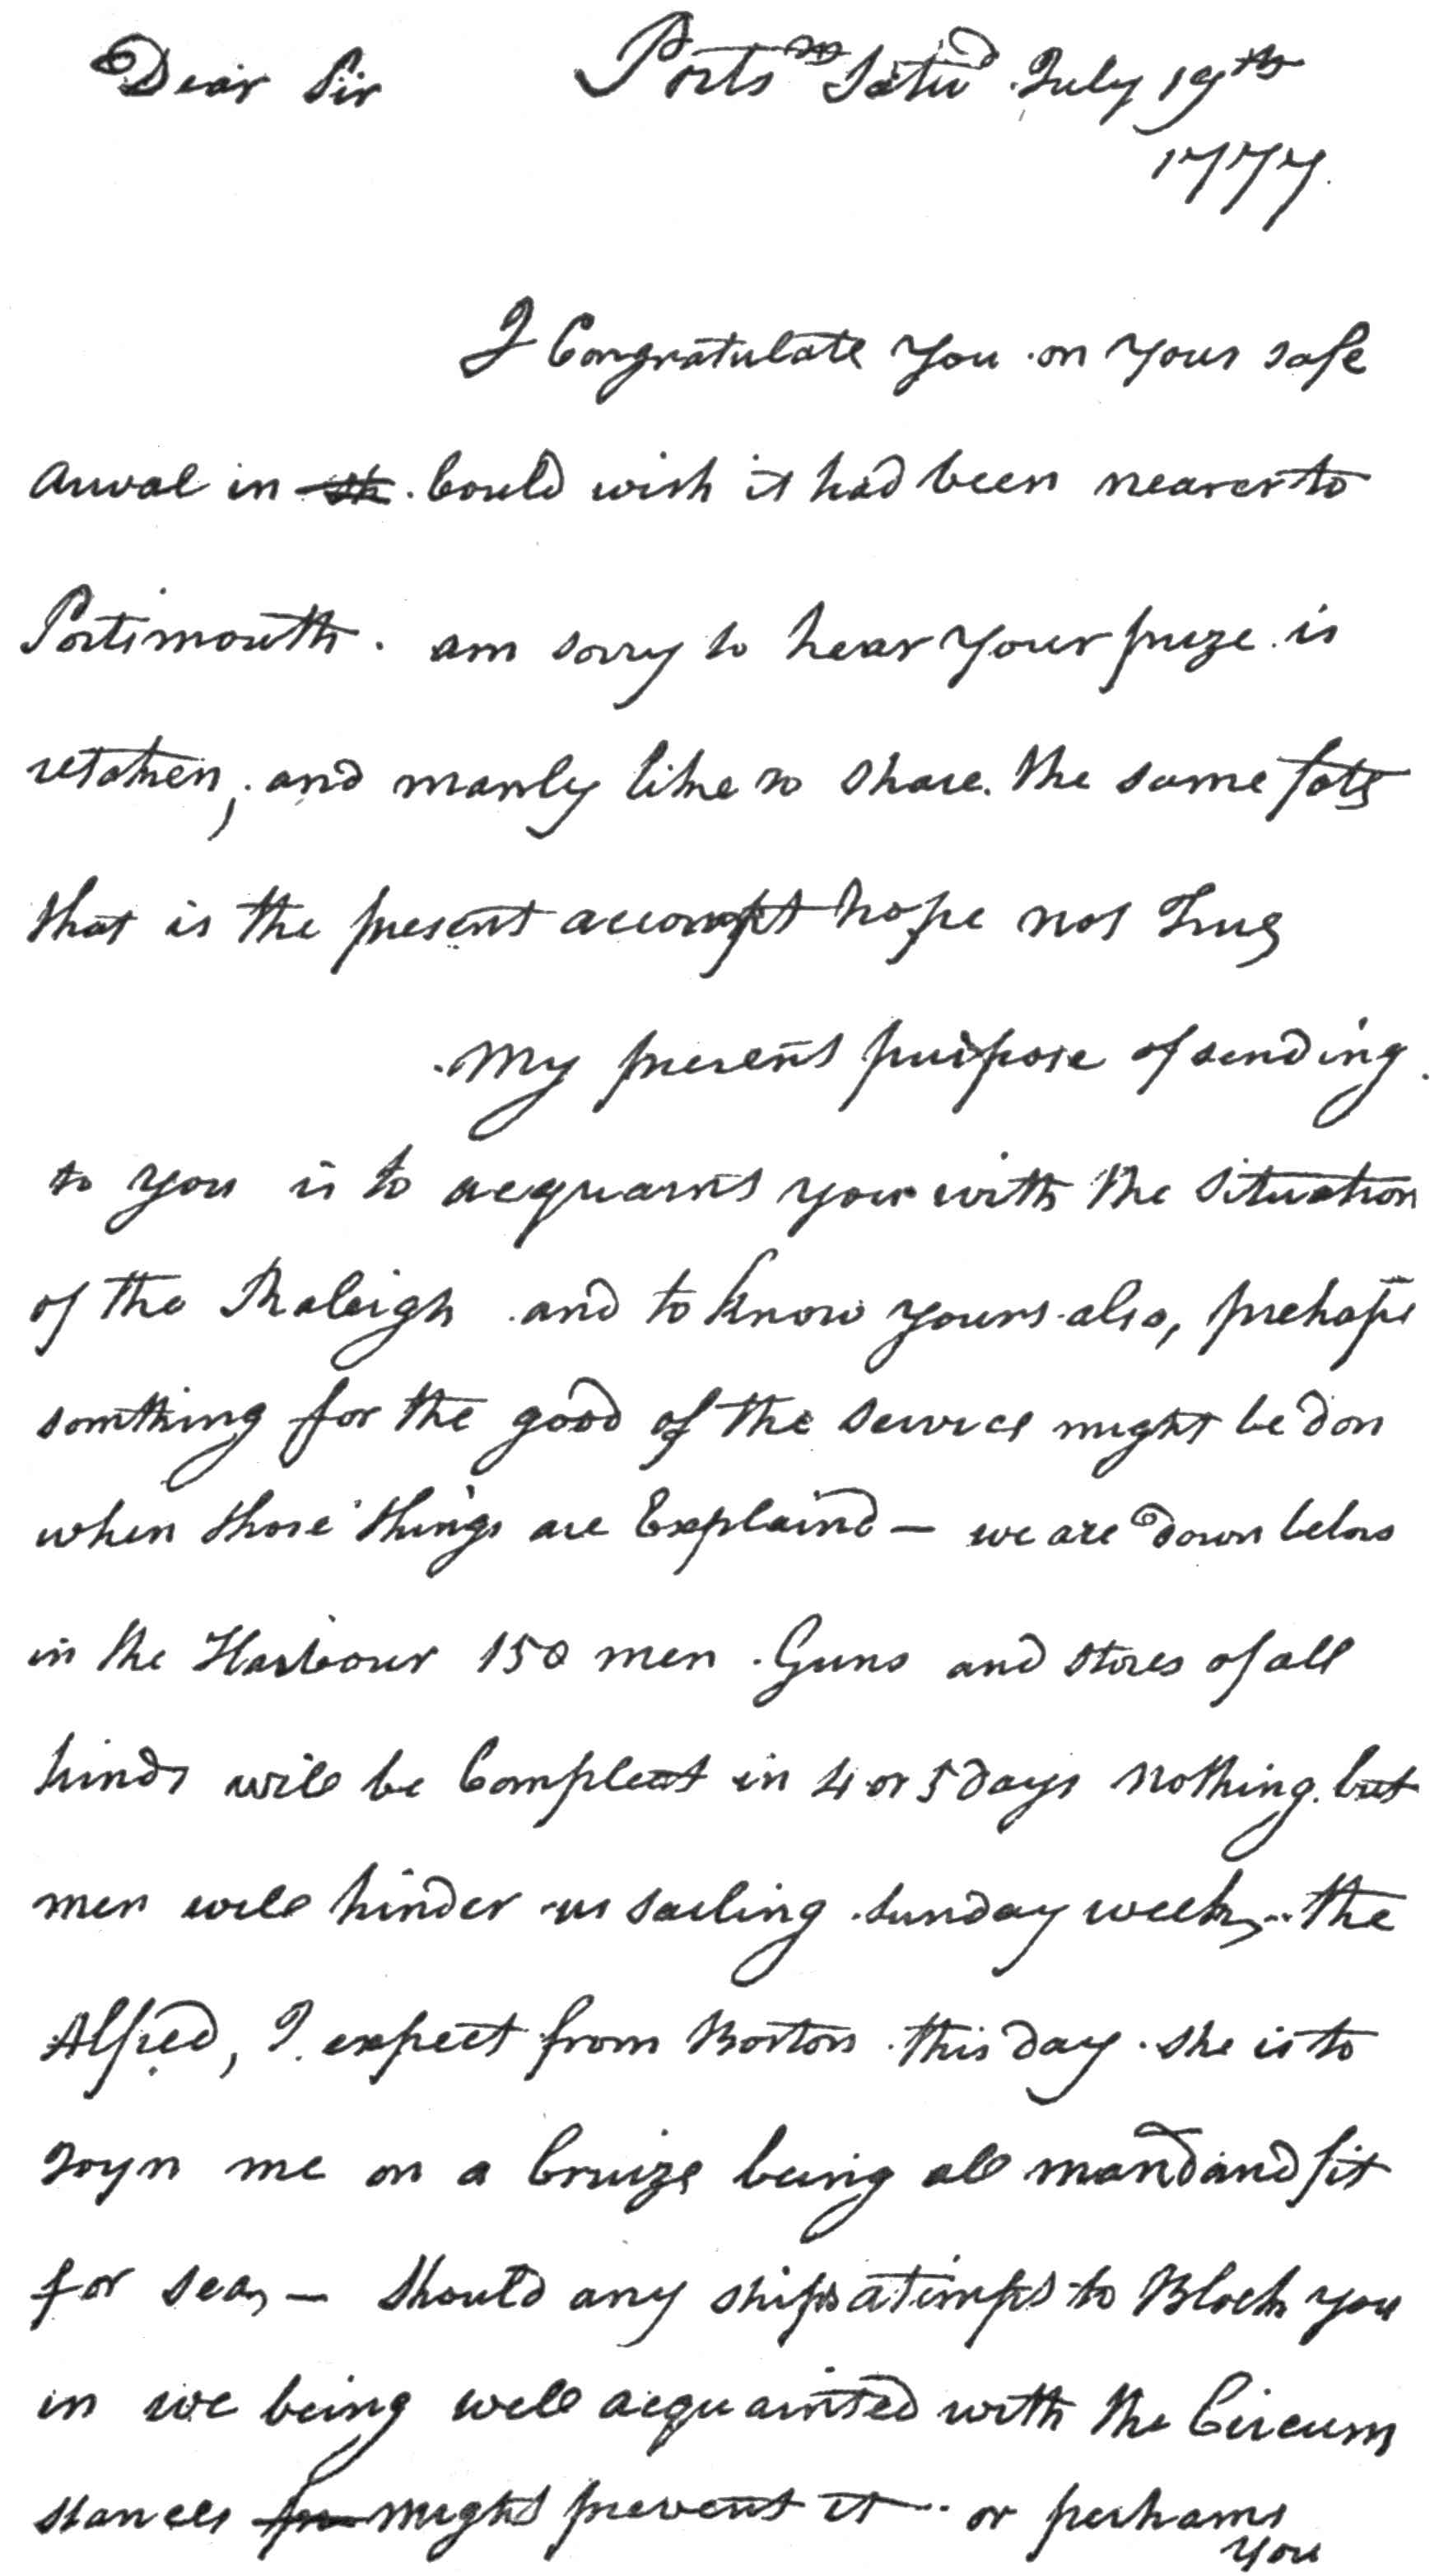 Dear Sir Portsm Saturd July 19th
1777.
I Congratulate You on Your safe
arival in Could wish it had been nearer to
Portsmouth. am sorry to hear Your prize is
retaken, and manly like to share the same fate
that is the present accompt hope not True
My present purpose of sending
to You is to acquaint you with the situation
of the Raleigh and to know yours also, prehaps
somthing for the good of the service might be don
when those things are Explaind — we are down below
in the Harbour 150 men. Guns and stores of all
kinds will be Compleat in 4 or 5 days nothing but
men will hinder us sailing sunday week, the
Alfred, I expect from Boston this day. she is to
Joyn me on a Cruize being all mand and fit
for sea, — should any ships atimpt to Block you
in we being well acquainted with the Circum
stances might prevent it or perhaps
you